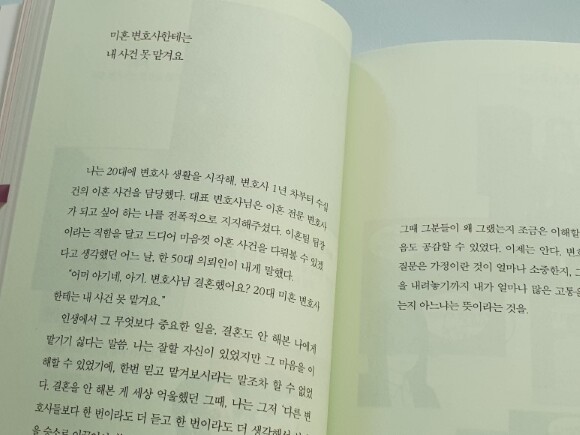 미혼 변호사한테는
내 사건 못 맡겨요
나는 20대에 변호사 생활을 시작해, 변호사 1년 차부터 수십
건의 이혼 사건을 담당했다. 대표 변호사님은 이혼 전문 변호사
가 되고 싶어 하는 나를 전폭적으로 지지해주셨다. 이혼팀 팀장
이라는 직함을 달고 드디어 마음껏 이혼 사건을 다뤄볼 수 있겠
다고 생각했던 어느 날, 한 50대 의뢰인이 내게 말했다.
"어머 아기네, 아기. 변호사님 결혼했어요? 20대 미혼 변호사
한테는 내 사건 못 맡겨요."
인생에서 그 무엇보다 중요한 일을, 결혼도 안 해본 나에게
맡기기 싫다는 말씀. 나는 잘할 자신이 있었지만 그 마음을 이
해할 수 있었기에, 한번 믿고 맡겨보시라는 말조차 할 수 없었
다. 결혼을 안 해본 게 세상 억울했던 그때, 나는 그저 '다른 변
호사들보다 한 번이라도 더 듣고 한 번이라도 더 생각해서
그때 그분들이 왜 그랬는지 조금은 이해할
음도 공감할 수 있었다. 이제는 안다.
질문은 가정이란 것이 얼마나 소중한지,
을 내려놓기까지 내가 얼마나 많은 고통을
는지 아느냐는 뜻이라는 것을.